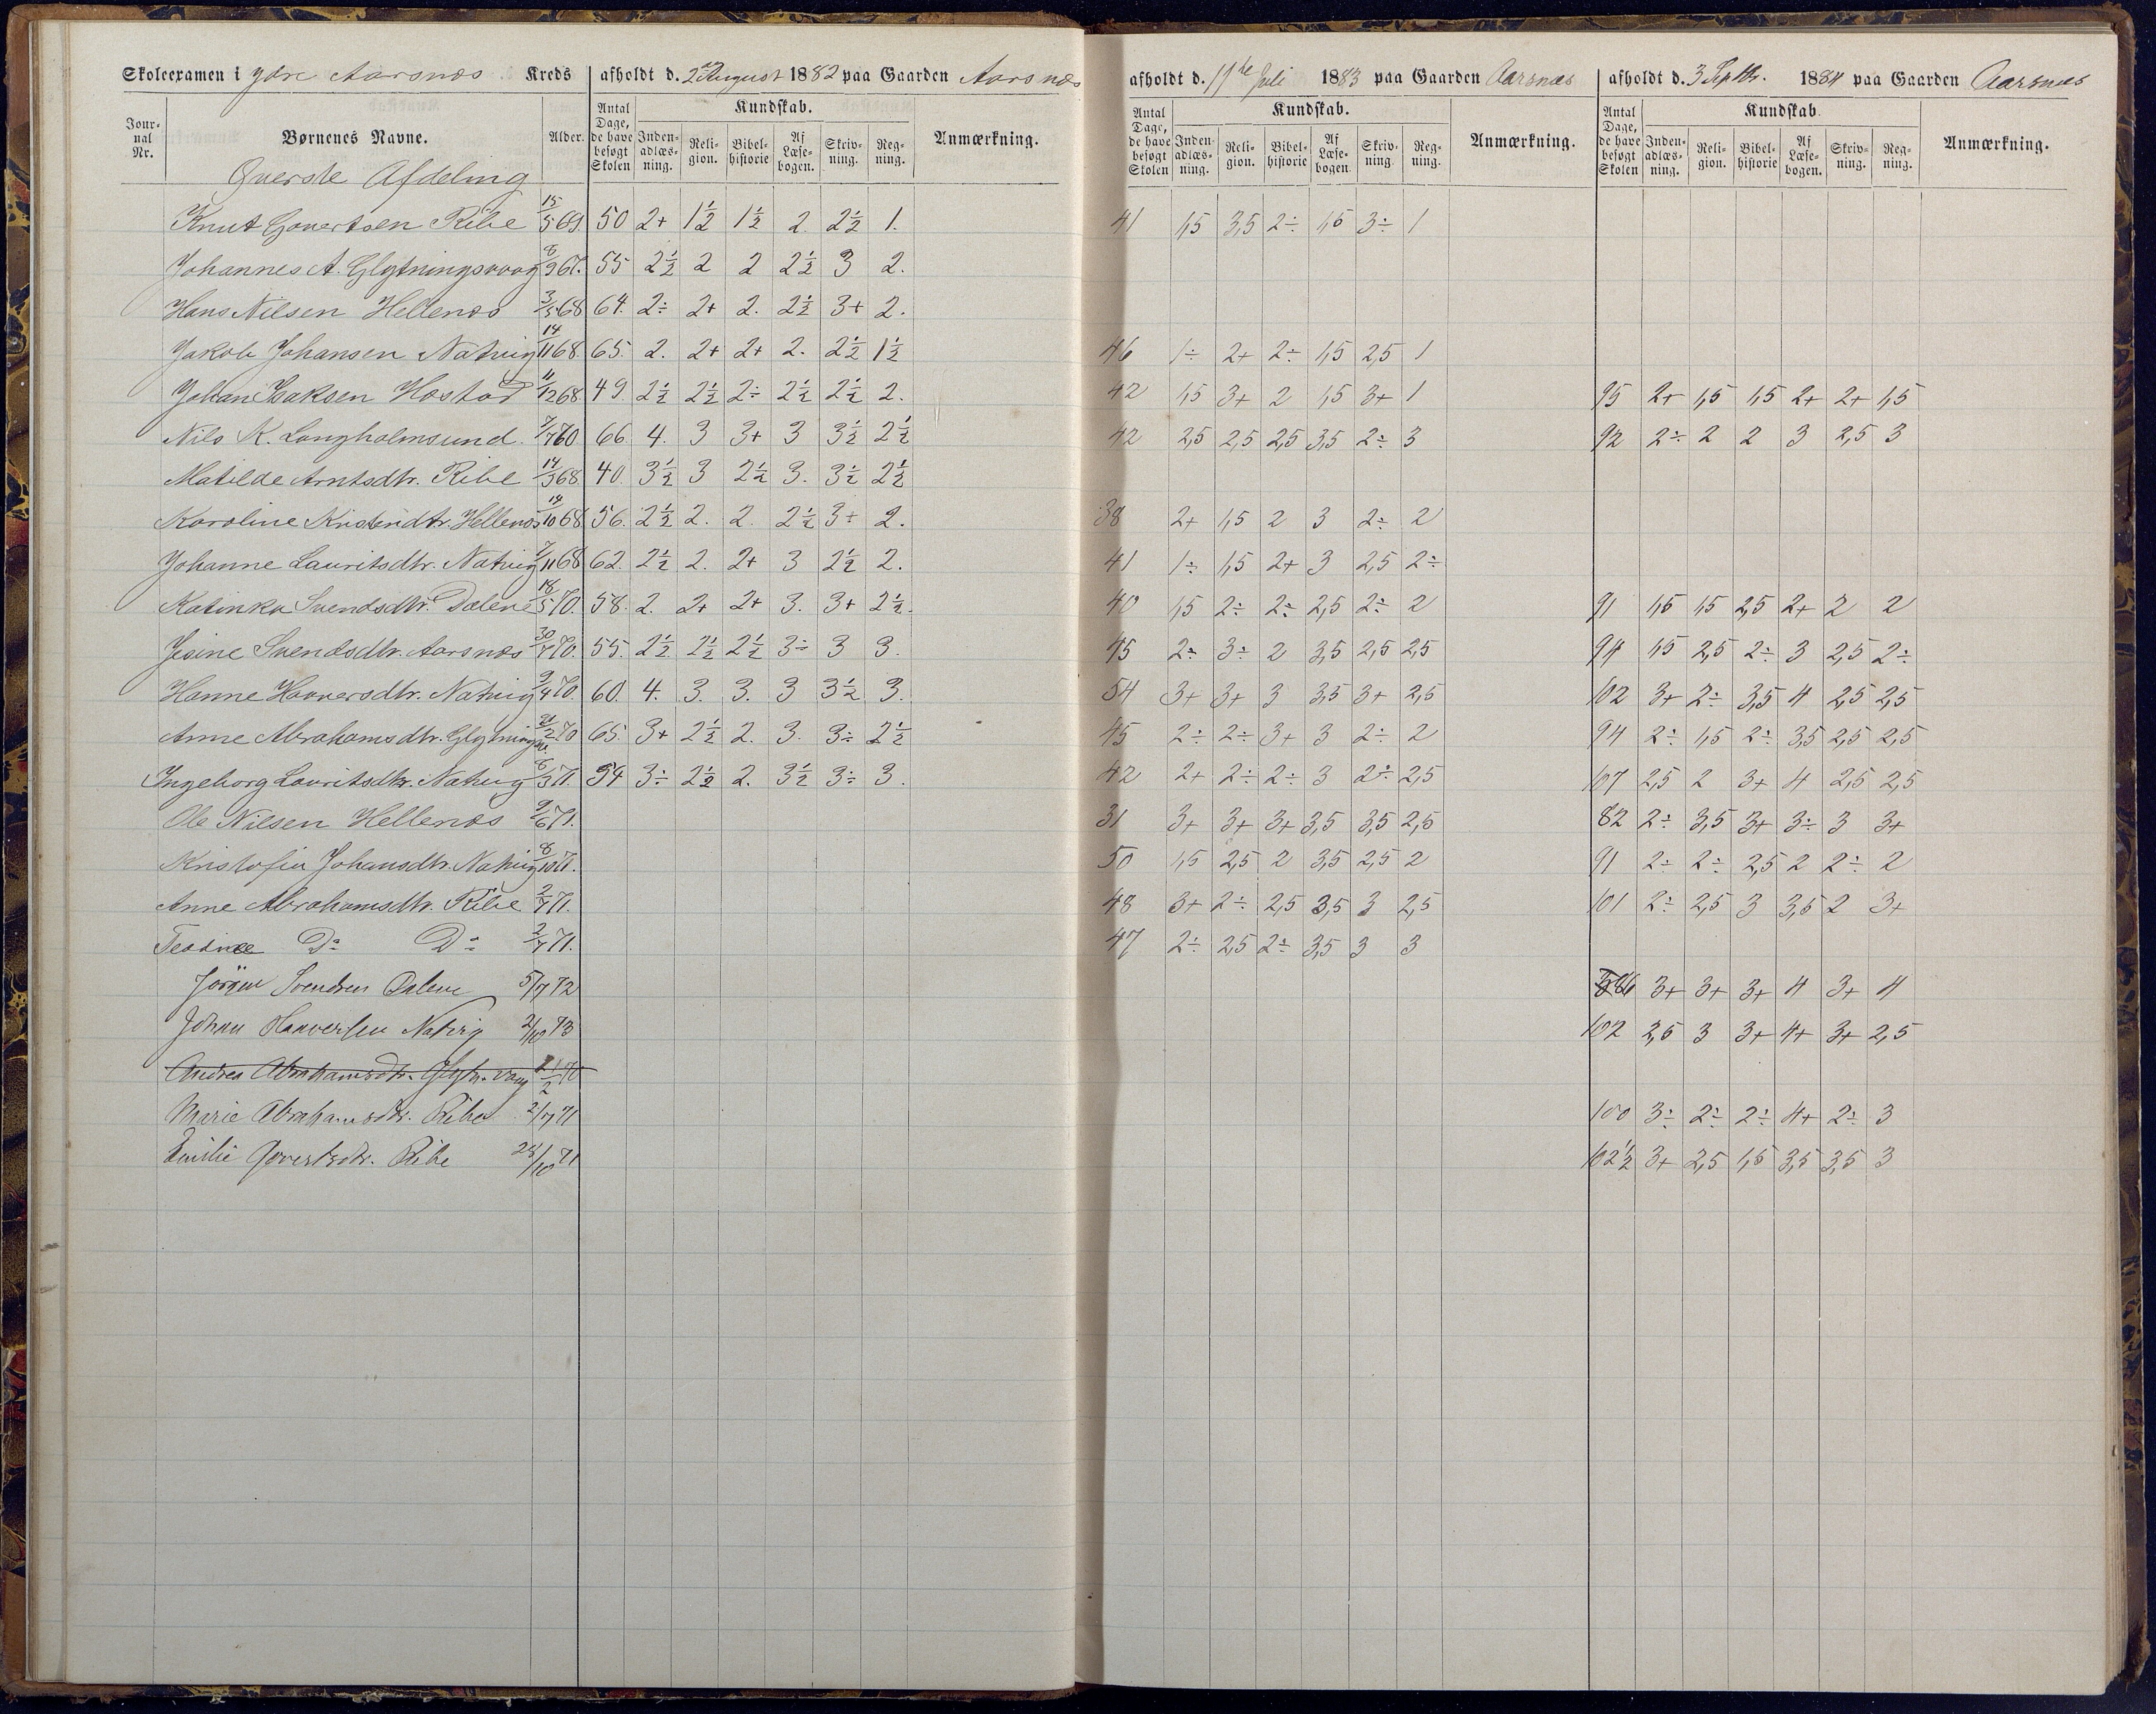 Skoleexamen i Ydre Aarsnæs Kreds afholdt d. 2den August 1882 paa Gaarden Aarsnæs afholdt d. 11te Juli 1883 paa Gaarden Aarsnæs afholdt d. 3 Septbr. 1884 paa Gaarden Aarsnæs
Journal Nr. Børnenes Navne. Alder. Antal Dage, de have besøgt Skolen Kundskab. Indenadlæsning. Religion. Bibelhistorie Af Læsebogen. Skrivning. Regning. Anmærkning. Antal Dage, de have besøgt Skolen Kundskab. Indenadlæsning. Religion. Bibelhistorie Af Læsebogen. Skrivning. Regning. Anmærkning. Antal Dage, de have besøgt Skolen Kundskab. Indenadlæsning. Religion. Bibelhistorie Af Læsebogen. Skrivning. Regning. Anmærkning.
Øverste Afdeling
Knut Govertsen Ribe 15/5 69. 50 2+ 1½ 1½ 2. 2½ 1. 41 1,5 3,5 2÷ 1,5 3÷ 1
Johannes A. Glytningsvaag 8/9 67. 55 2½ 2 2 2½ 3 2.
Hans Nilsen Hellenæs 3/5 68 64. 2÷ 2+ 2. 2½ 3+ 2.
Jakob Johansen Natvig 14/11 68. 65. 2. 2+ 2+ 2. 2½ 1½ 46 1÷ 2+ 2÷ 1,5 2,5 1
Johan Isaksen Høstad 11/12 68 49. 2½ 2½ 2÷ 2½ 2½ 2. 42 1,5 3+ 2 1,5 3+ 1 95 2+ 1,5 1,5 2+ 2+ 1,5
Nils K. Langholmsund. 66. 4. 3 3+ 3 3½ 2½ 42 2,5 2,5 2,5 3,5 2÷ 3 92 2÷ 2 2 3 2,5 3
Matilde Arntsdtr. Ribe 14/3 68. 40. 3½ 3 2½ 3. 3½ 2½
Karoline Kristendtr. Hellenæs 19/10 68 56. 2½ 2. 2. 2½ 3+ 2. 38 2+ 1,5 2 3 2÷ 2
Johanne Lauritsdtr. Natvig 7/11 68 62. 2½ 2. 2+ 3 2½ 2. 41 1÷ 1,5 2+ 3 2,5 2÷
Katinka Svendsdtr. Dalene 18/5 70. 58. 2. 2+ 2+ 3. 3+ 2½. 40 1,5 2÷ 2÷ 2,5 2÷ 2 91 1,5 1,5 2,5 2+ 2 2
Jesine Svendsdtr. Aarsnæs 30/7 70. 55. 2½ 2½ 2½ 3÷ 3 3. 45 2÷ 3÷ 2 3,5 2,5 2,5 94 1,5 2,5 2÷ 3 2,5 2÷
Hanne Haaversdtr. Natvig 9/4 70. 60. 4. 3. 3. 3 3½ 3. 54 3+ 3+ 3 3,5 3+ 2,5 102 3+ 2÷ 3,5 4 2,5 2,5
Anne Abrahamsdtr. Glytningsv. 21/2 70 65. 3+ 2½ 2. 3. 3÷ 2½ 45 2÷ 2÷ 3+ 3 2÷ 2 94 2÷ 1,5 2÷ 3,5 2,5 2,5
Ingeborg Lauritsdtr. Natvig 8/3 71. 54 3÷ 2½ 2. 3½ 3÷ 3. 42 2+ 2÷ 2÷ 3 2÷ 2,5 107 2,5 2 3+ 4 2,5 2,5
Ole Nilsen Hellenæs 9/6 71. 31 3+ 3+ 3+ 3,5 3,5 2,5 82 2÷ 3,5 3+ 3÷ 3 3+
Kristofia Johansdtr. Natvig 8/10 71. 50 1,5 2,5 2 3,5 2,5 2 91 2÷ 2÷ 2,5 2 2÷ 2
Anne Abrahamsdtr. Ribe 2/7 71. 48 3+ 2÷ 2,5 3,5 3 2,5 101 2÷ 2,5 3 3,5 2 3+
Teodine Do Do 2/7 71. 47 2÷ 2,5 2÷ 3,5 3 3
Jörgen Svendsen Dalene 5/7 72 86 3+ 3+ 3+ 4 3+ 4
Johan Haaversen Natvig 2/10 73 102 2,5 3 3+ 4+ 3+ 2,5
Andrea Abrahamsdtr. Glytn.vaag 70
Marie Abrahamsdtr. Ribe 2/7 71 100 3÷ 2÷ 2÷ 4+ 2÷ 3
Emilie Govertsdtr. Ribe 28/10 71 102½ 3+ 2,5 1,5 3,5 3,5 3